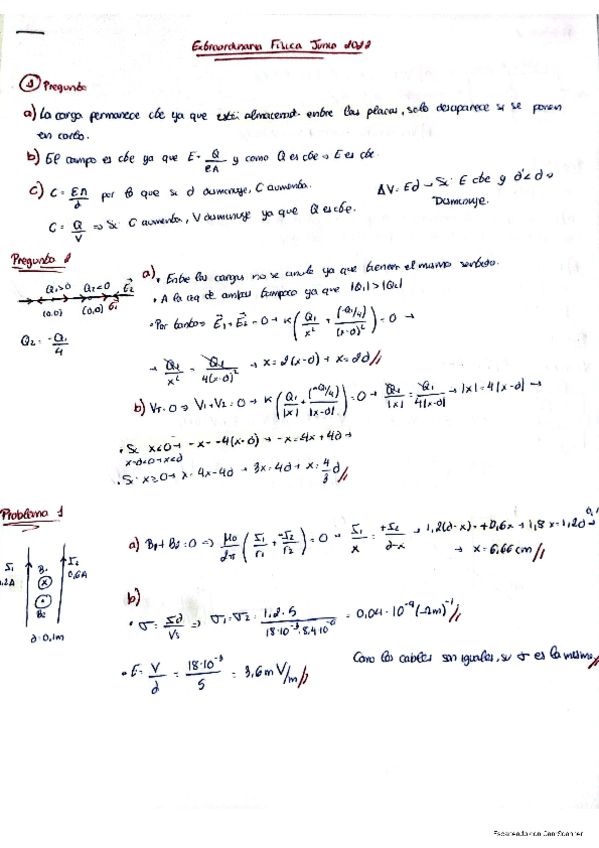 Extraordinaria Física Junio 2022
① Pregunta
a) La carga permanece cte ya que está almacenada entre las placas, solo desaparece si se ponen
en corto.
b) El campo es cte ya que E = Q/εA y como Q es cte → E es cte.
c) C = εA/d por lo que si d disminuye, C aumenta. ΔV = Ed → Si E cte y d' < d →
Disminuye.
C = Q/V ⇒ Si C aumenta, V disminuye ya que Q es cte.
Pregunta 2
Q₁>0 Q₂<0 E₂
(0,0) (0,0) E₁
Q₂ = -Q₁/4
a) • Entre las cargas no se anula ya que tienen el mismo sentido.
• A la izq de ambas tampoco ya que |Q₁| > |Q₂|
• Por tanto E₁ + E₂ = 0 → K(Q₁/x² + (-Q₁/4)/(x-d)²) = 0 →
→ Q₁/x² = Q₁/4(x-d)² → x = 2(x-d) → x = 2d //
b) V_T = 0 → V₁+V₂ = 0 → K(Q₁/|x| + (-Q₁/4)/|x-d|) = 0 → Q₁/|x| = Q₁/4|x-d| → |x| = 4|x-d| →
• Si x<0 → -x = -4(x-d) → -x = 4x + 4d →
x-d<0 → x<d
• Si x≥0 → x = 4x-4d → 3x = 4d → x = 4/3 d //
Problema 1
I₁ I₂
1,2A 0,6A
B₁
B₂
d = 0,1m
a) B₁ + B₂ = 0 ⇒ μ₀/2π (I₁/r₁ + -I₂/r₂) = 0 → I₁/x = +I₂/d-x → 1,2(d-x) = +0,6x → 1,8x = 1,2d
0,1
→ x = 6,66 cm //
b)
• σ = Id/VS ⇒ σ₁ = σ₂ = 1,2·5/18·10⁻³·8,4·10⁻⁶ = 0,04·10⁻⁹ (Ωm)⁻¹ //
• E = V/d = 18·10⁻³/5 = 3,6 mV/m // Como los cables son iguales, su σ es la misma //
Escaneado con CamScanner